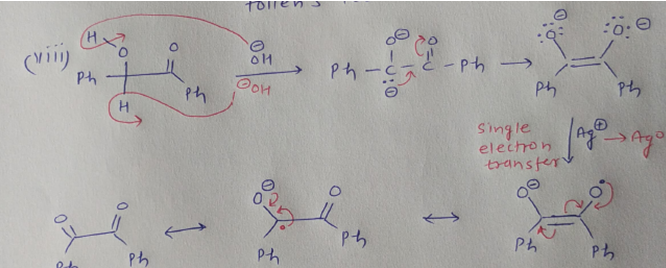 tollen's
(viii) H O O ⊖OH
Ph Ph H ⊖OH
O⊖ O
Ph - C - C - Ph
⊖
:Ö:⊖ :Ö:⊖
Ph Ph
single electron transfer Ag⊕ → Ag⁰
O O
Ph Ph
O⊖ O
Ph Ph
O⊖ O•
Ph Ph